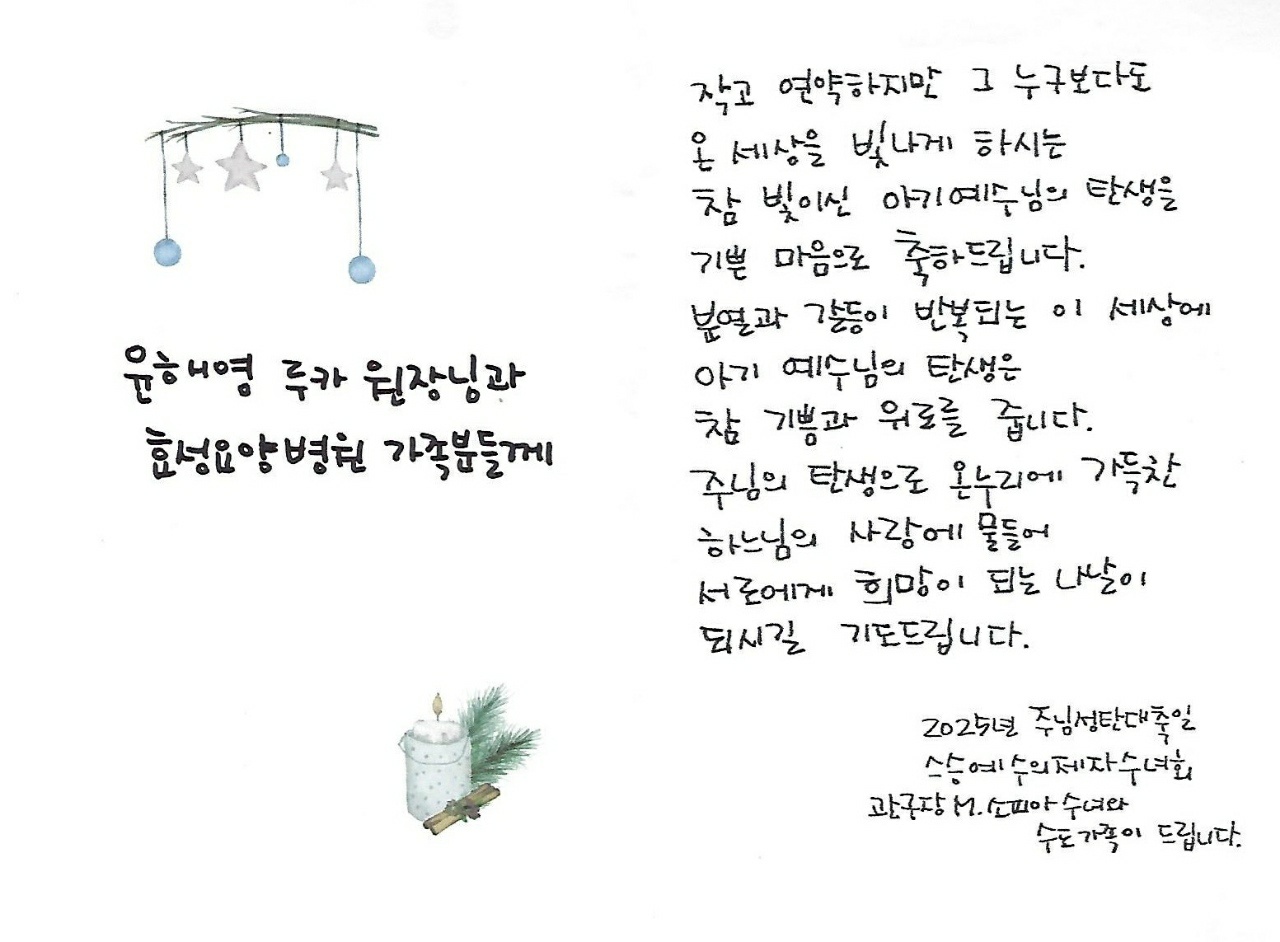 윤해영 루카 원장님과
효성요양병원 가족분들께
작고 연약하지만 그 누구보다도
온 세상을 빛나게 하시는
참 빛이신 아기예수님의 탄생을
기쁜 마음으로 축하드립니다.
분열과 갈등이 반복되는 이 세상에
아기 예수님의 탄생은
참 기쁨과 위로를 줍니다.
주님의 탄생으로 온누리에 가득찬
하느님의 사랑에 물들어
서로에게 희망이 되는 나날이
되시길 기도드립니다.
2025년 주님성탄대축일
스승예수의제자수녀회
관구장 M.소피아 수녀와
수도가족이 드립니다.